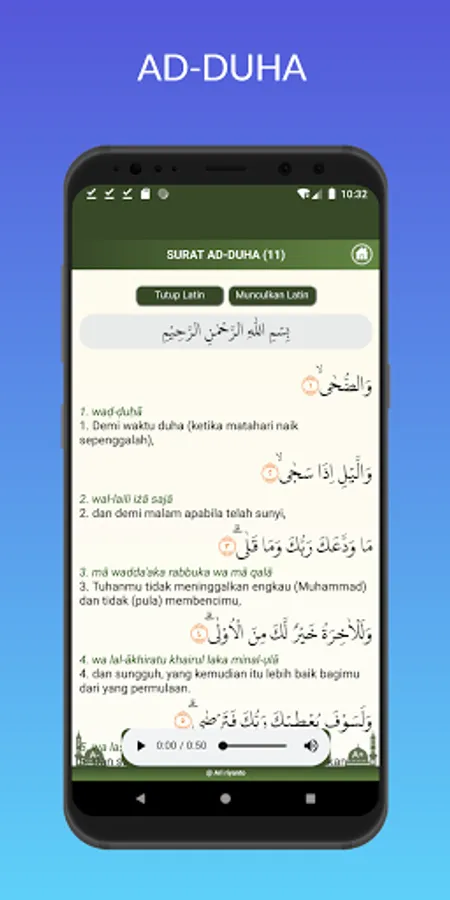 AD-DUHA
10:32
SURAT AD-DUHA (11)
Tutup Latin Munculkan Latin
بِسْمِ اللهِ الرَّحْمٰنِ الرَّحِيْمِ
وَالضُّحٰىۙ ١
1. waḍ-ḍuḥā
1. Demi waktu duha (ketika matahari naik
sepenggalah),
وَالَّيْلِ اِذَا سَجٰىۙ ٢
2. wal-laili iżā sajā
2. dan demi malam apabila telah sunyi,
مَا وَدَّعَكَ رَبُّكَ وَمَا قَلٰىۗ ٣
3. mā wadda'aka rabbuka wa mā qalā
3. Tuhanmu tidak meninggalkan engkau (Muhammad)
dan tidak (pula) membencimu,
وَلَلْاٰخِرَةُ خَيْرٌ لَّكَ مِنَ الْاُوْلٰىۗ ٤
4. wa lal-ākhiratu khairul laka minal-ụlā
4. dan sungguh, yang kemudian itu lebih baik bagimu
dari yang permulaan.
وَلَسَوْفَ يُعْطِيْكَ رَبُّكَ فَتَرْضٰىۗ ٥
0:00 / 0:50
@ Ari riyanto